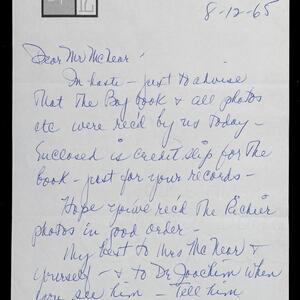 8-12-65
Dear Mr McNear:
In haste - just to advise
that the Bay book & all photos
etc were rec'd by us today -
Enclosed is credit slip for the
book - just for your records -
Hope you've rec'd the Richier
photos in good order -
My best to Mrs McNear &
yourself - & to Dr Joachim when
you see him - tell him